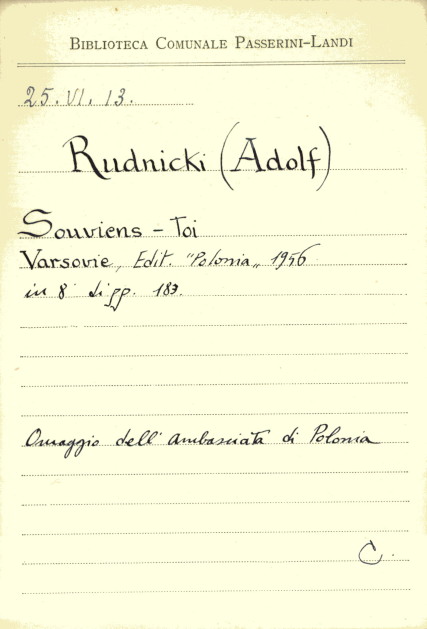 BIBLIOTECA COMUNALE PASSERINI-LANDI
25. VI. 13.
Rudnicki (Adolf)
Souviens - Toi
Varsovie, Edit. "Polonia„ 1956
in 8° di pp. 183.
Omaggio dell' ambasciata di Polonia
C.